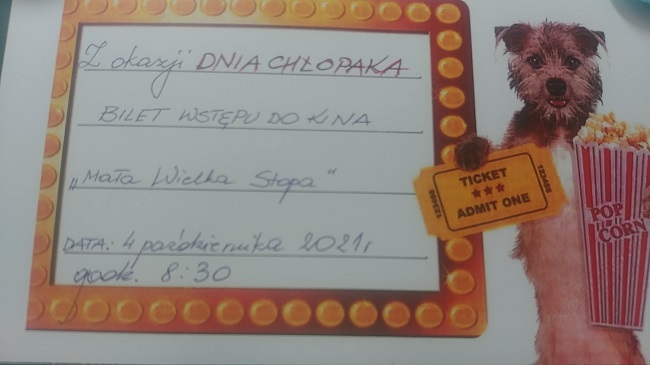 Z okazji DNIA CHŁOPAKA
BILET WSTĘPU DO KINA
„Mała Wielka Stopa"
DATA: 4 października 2021r
godz. 8:30
TICKET
ADMIT ONE
123456
123456
POP
CORN